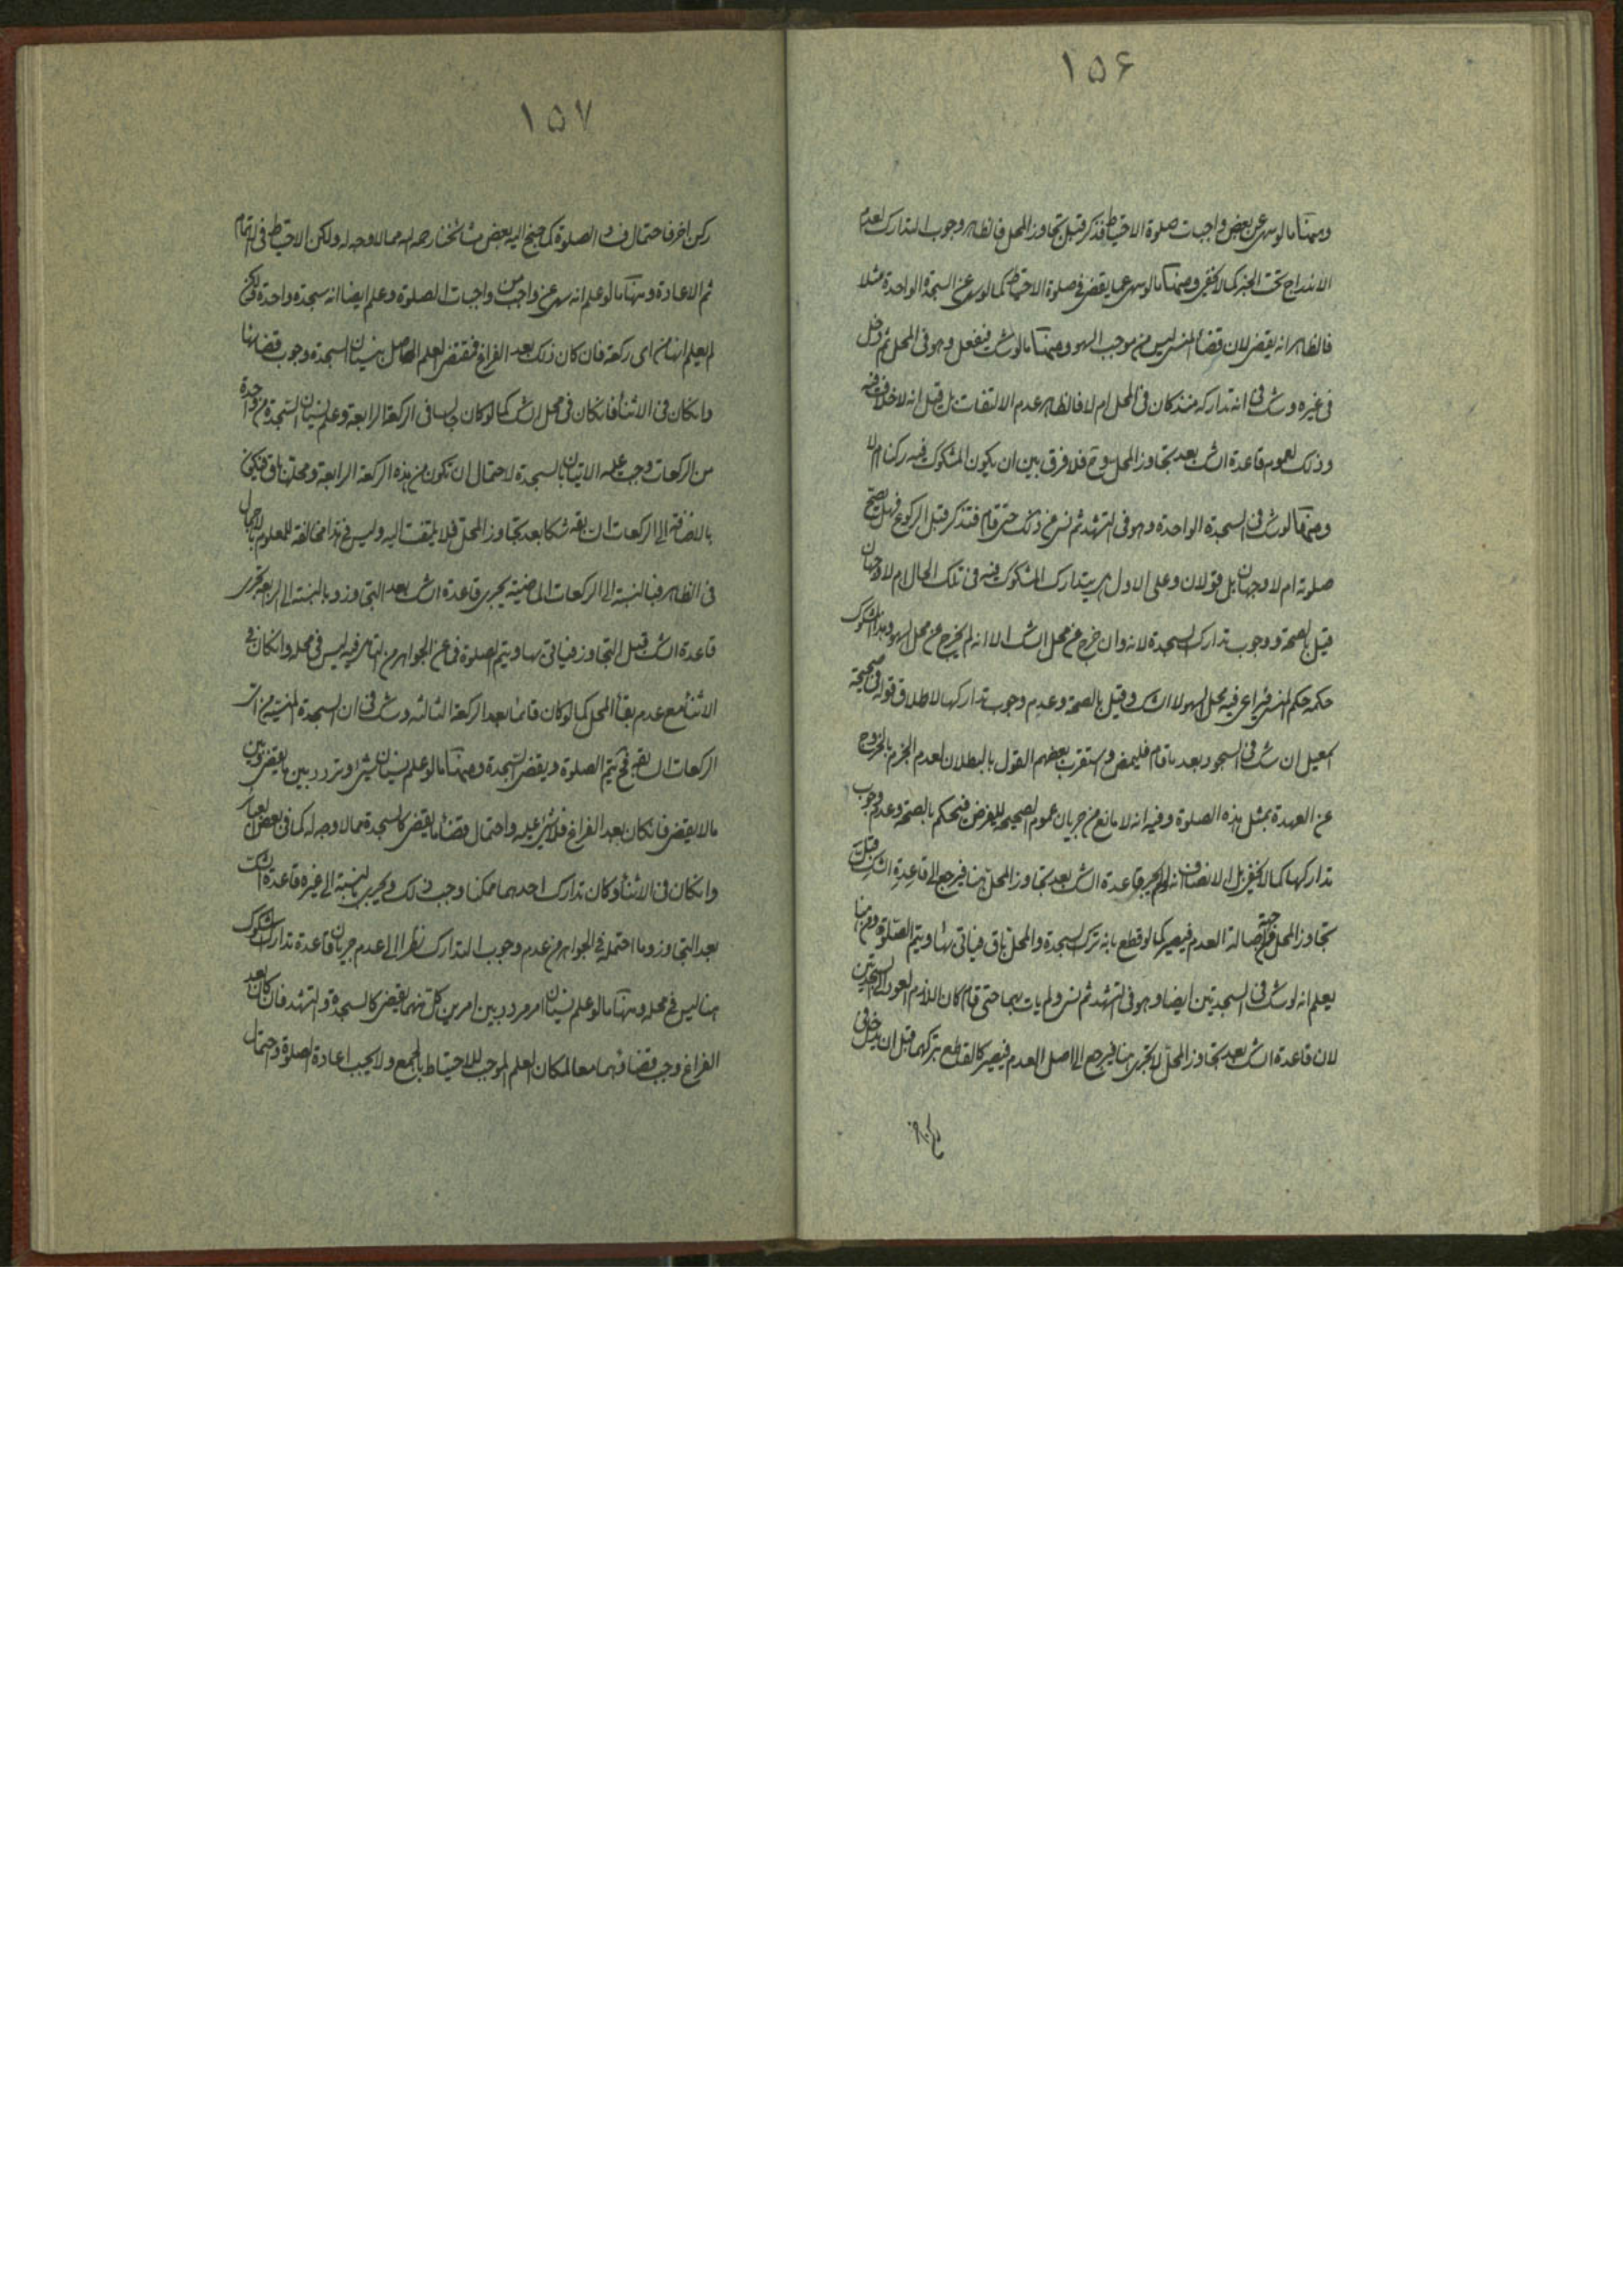 ١٥۶
ومنها ما لو سهى عن بعض واجبات صلوة الاحتياط فذكر قبل تجاوز المحل فالظاهر وجوب التدارك لعدم
الاندراج تحت الخبر كما لا يخفى ومنها ما لو سهى عما يقضى فى صلوة الاحتياط كما لو سهى عن السجدة الواحدة مثلا
فالظاهر انه يقضى لان قضاء المنسى ليس من موجب السهو ومنها ما لو شك فى فعل وهو فى المحل ثم دخل
فى غيره وشك فى انه تداركه منذ كان فى المحل ام لا فالظاهر عدم الالتفات بل قيل انه لا خلاف فيه
وذلك لعموم قاعدة الشك بعد تجاوز المحل وح فلا فرق بين ان يكون المشكوك فيه ركنا ام لا
ومنها لو شك فى السجدة الواحدة وهو فى التشهد ثم نسى من ذلك حتى قام فتذكر قبل الركوع فهل يصح
صلوته ام لا وجهان بل قولان وعلى الاول هل يتدارك المشكوك فيه فى تلك الحال ام لا وجهان
قيل بالصحة ووجوب تدارك السجدة لانه وان خرج عن محل الشك الا انه لم يخرج عن محل السهو وهذا المشكوك
حكمه حكم المنسى فيراعى فيه محل السهو لا الشك وقيل بالصحة وعدم وجوب تداركها لاطلاق قوله فى صحيحة
اسمعيل ان شك فى السجود بعد ما قام فليمض واستقرب بعضهم القول بالبطلان لعدم الجزم بالخروج
عن العهدة بمثل هذه الصلوة وفيه انه لا مانع من جريان عموم الصحيحة للفرض فيحكم بالصحة وعدم وجوب
تداركها كما لا يخفى بل الانصاف انه لم يجر قاعدة الشك بعد تجاوز المحل هنا فيرجع الى قاعدة الشك قبل
تجاوز المحل اصالة العدم فيصير كما لو قطع بانه ترك السجدة والمحل باق فياتى بها ويتم الصلوة ومن هنا
يعلم انه لو شك فى السجدتين ايضا وهو فى التشهد ثم نسى ولم يات بهما حتى قام كان اللازم العود الى السجدتين
لان قاعدة الشك بعد تجاوز المحل لا تجرى هنا فيرجع الى اصل العدم فيصير كالقطع بتركهما قبل ان يدخل فى
ركن اخر
١٥٧
ركن اخر فاحتمال فساد الصلوة كما جنح اليه بعض مشائخنا رحمه الله مما لا وجه له ولكن الاحتياط فى الاتمام
ثم الاعادة ومنها ما لو علم انه سهى عن واجب من واجبات الصلوة وعلم ايضا انه سجدة واحدة لكن
لم يعلم انها من اى ركعة فان كان ذلك بعد الفراغ فمقتضى العلم الحاصل بنسيان السجدة وجوب قضائها
وانكان فى الاثناء فانكان فى محل الشك كما لو كان جالسا فى الركعة الرابعة وعلم بنسيان السجدة من واحدة
من الركعات وجب عليه الاتيان بالسجدة لاحتمال ان تكون من هذه الركعة الرابعة ومحلها باق فيكون
بالاضافة الى الركعات السابقة شكا بعد تجاوز المحل فلا يلتفت اليه وليس فى هذا مخالفة للمعلوم بالاجمال
فى الظاهر فبالنسبة الى الركعات الماضية يجرى قاعدة الشك بعد التجاوز وبالنسبة الى الرابعة تجرى
قاعدة الشك قبل التجاوز فياتى بها ويتم الصلوة فما عن الجواهر من التامل فيه ليس فى محله وانكان فى
الاثناء مع عدم بقاء المحل كما لو كان قائما بعد الركعة الثالثة وشك فى ان السجدة المنسية من اى
الركعات السابقة فح يتم الصلوة ويقضى السجدة ومنها ما لو علم بنسيان شئ وتردد بين ما يقضى وبين
ما لا يقضى فانكان بعد الفراغ فلا شئ عليه واحتمال قضاء ما يقضى كالسجدة مما لا وجه له كما فى بعض العبائر
وانكان فى الاثناء وكان تدارك احدهما ممكنا وجب ذلك ويجرى بالنسبة الى غيره قاعدة الشك
بعد التجاوز وما احتمله فى الجواهر من عدم وجوب التدارك نظرا الى عدم جريان قاعدة تدارك المشكوك
هنا ليس فى محله ومنها ما لو علم بنسيان امر مردد بين امرين كل منهما يقضى كالسجدة والتشهد فان كان بعد
الفراغ وجب قضاؤهما معا لمكان العلم الموجب للاحتياط بالجمع ولا يجب اعادة الصلوة واحتمال